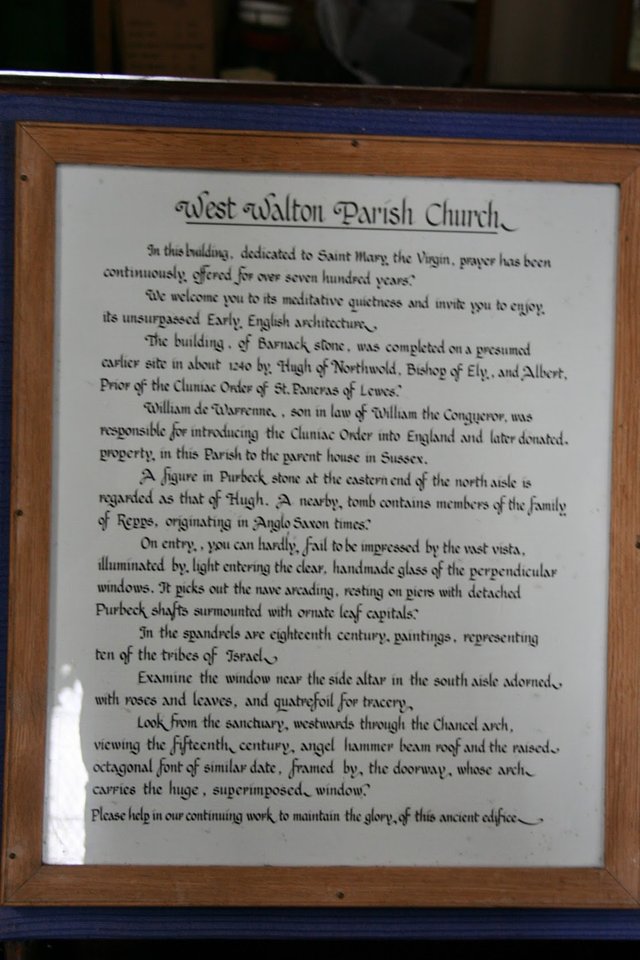 West Walton Parish Church
In this building, dedicated to Saint Mary the Virgin, prayer has been
continuously offered for over seven hundred years.
We welcome you to its meditative quietness and invite you to enjoy
its unsurpassed Early English architecture.
The building, of Barnack stone, was completed on a presumed
earlier site in about 1240 by Hugh of Northwold, Bishop of Ely, and Albert,
Prior of the Cluniac Order of St. Pancras of Lewes.
William de Warrenne, son in law of William the Conqueror, was
responsible for introducing the Cluniac Order into England and later donated
property in this Parish to the parent house in Sussex.
A figure in Purbeck stone at the eastern end of the north aisle is
regarded as that of Hugh. A nearby tomb contains members of the family
of Repps, originating in Anglo Saxon times.
On entry, you can hardly fail to be impressed by the vast vista,
illuminated by light entering the clear, handmade glass of the perpendicular
windows. It picks out the nave arcading, resting on piers with detached
Purbeck shafts surmounted with ornate leaf capitals.
In the spandrels are eighteenth century paintings, representing
ten of the tribes of Israel.
Examine the window near the side altar in the south aisle adorned
with roses and leaves, and quatrefoil for tracery.
Look from the sanctuary westwards through the Chancel arch,
viewing the fifteenth century angel hammer beam roof and the raised
octagonal font of similar date, framed by the doorway, whose arch
carries the huge, superimposed window.
Please help in our continuing work to maintain the glory of this ancient edifice